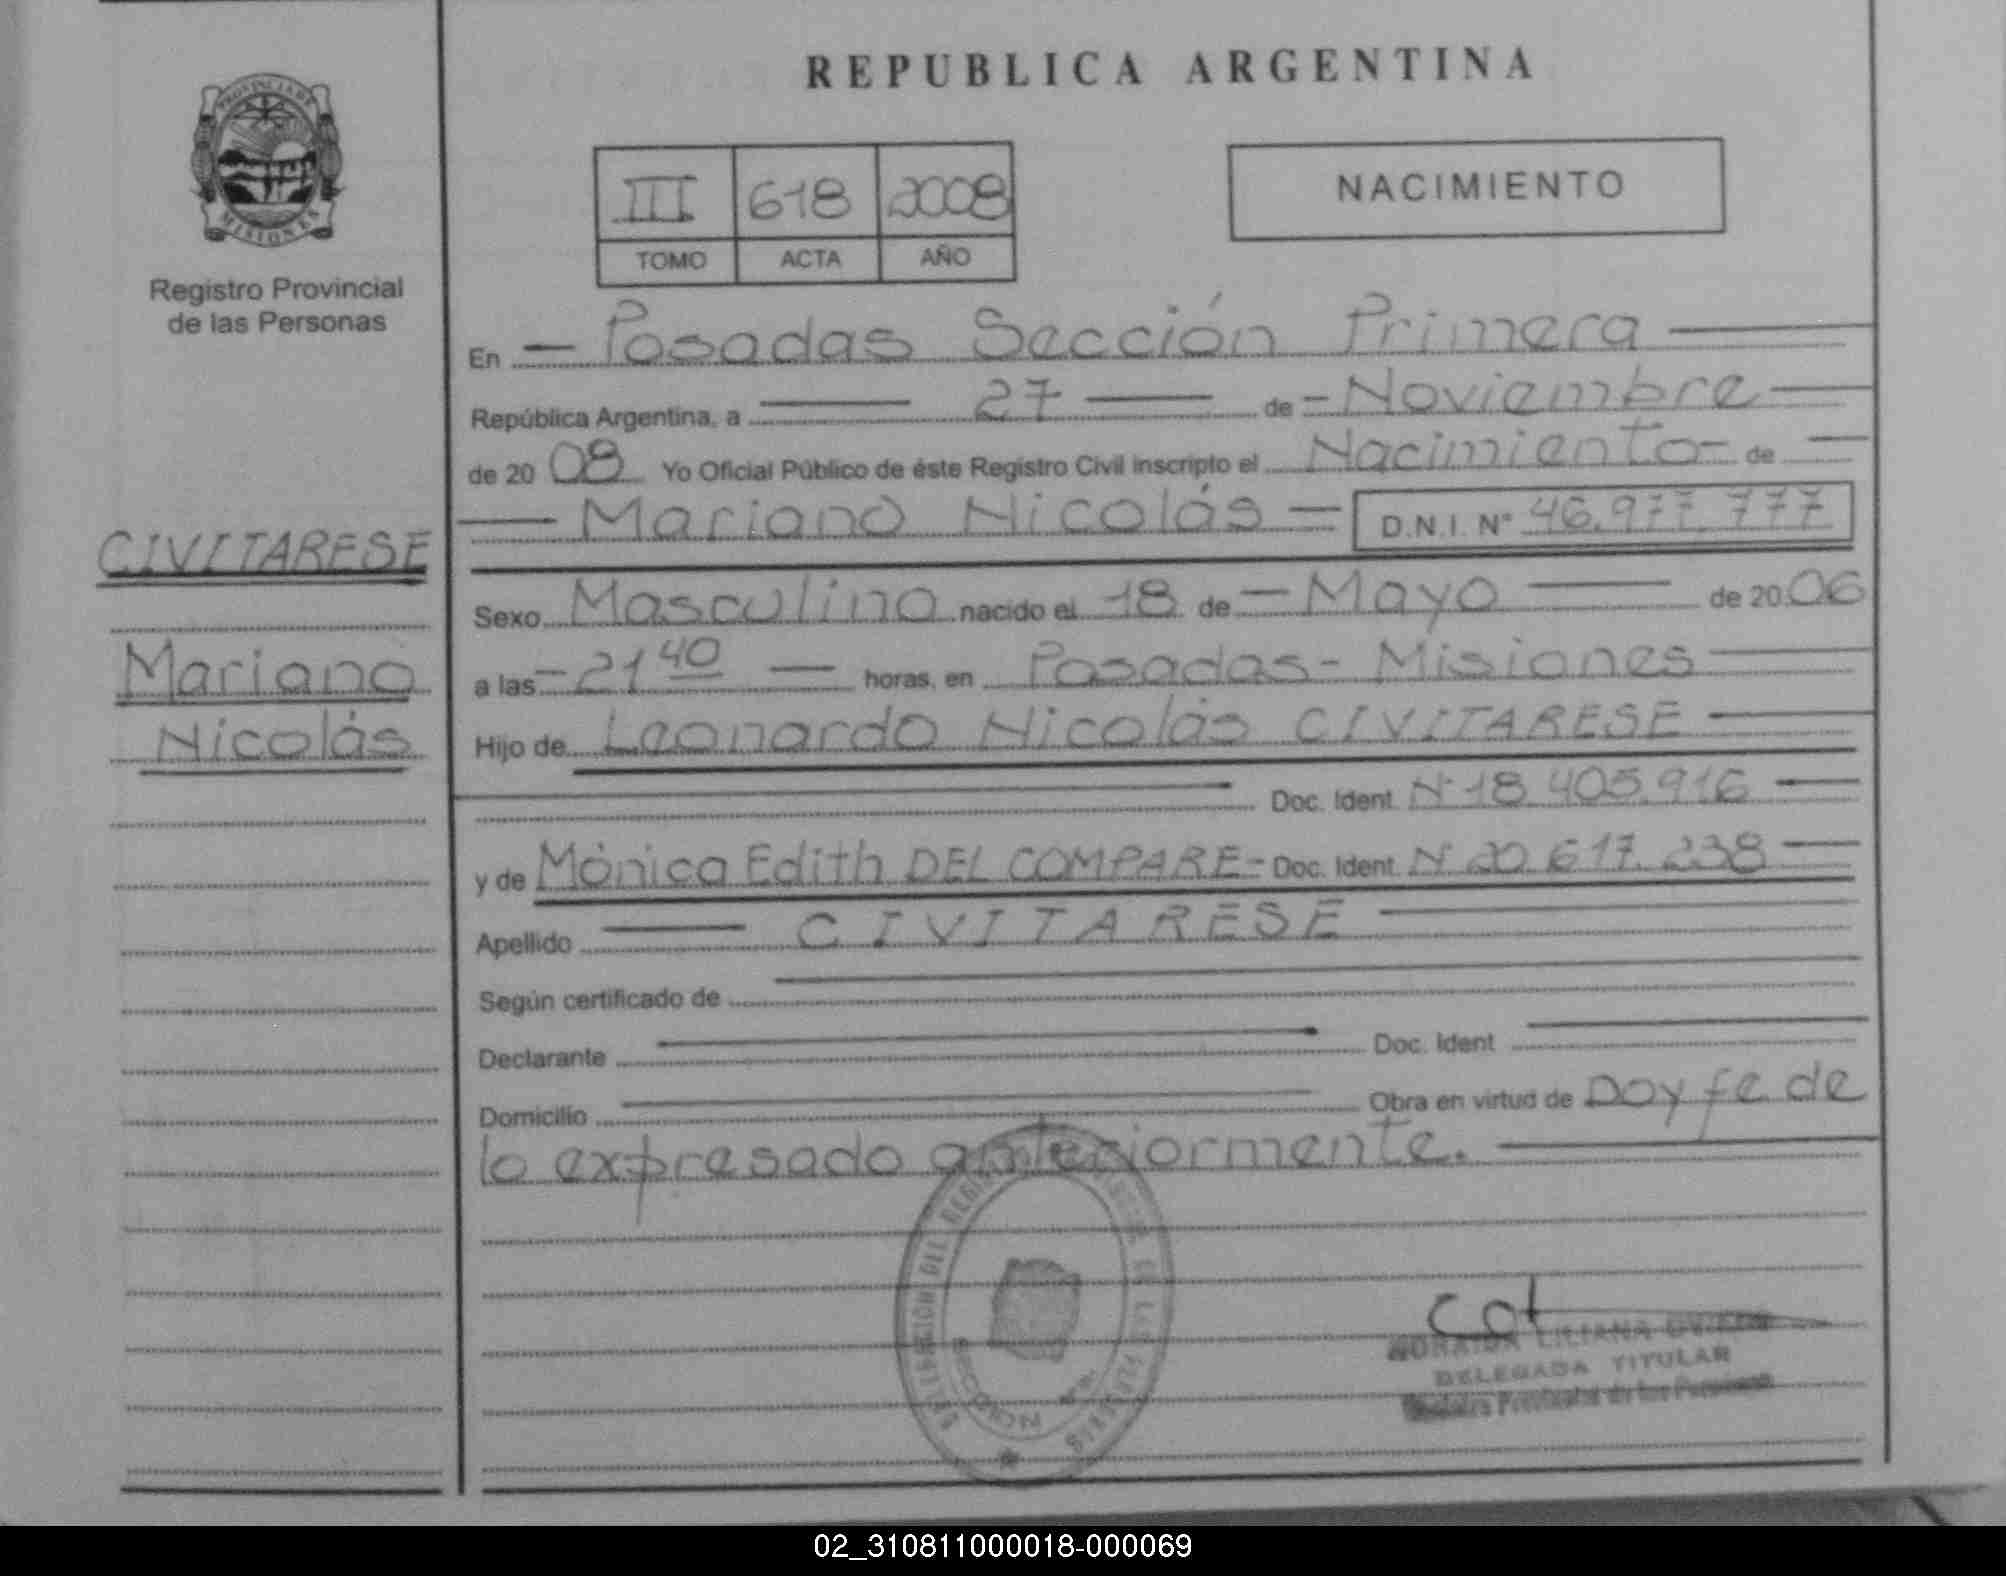 REPUBLICA ARGENTINA
PROVINCIA DE
MISIONES
Registro Provincial
de las Personas
III 618 2008
TOMO ACTA AÑO
NACIMIENTO
En Posadas Sección Primera
República Argentina, a 27 de Noviembre
de 2008 Yo Oficial Público de éste Registro Civil inscripto el Nacimiento de
Mariano Nicolás D.N.I. N° 46.977.777
CIVITARESE
Mariano
Nicolás
Sexo Masculino nacido el 18 de Mayo de 2006
a las 21 40 horas, en Posadas - Misiones
Hijo de Leonardo Nicolás CIVITARESE
Doc. Ident. N° 18.405.916
y de Mónica Edith DEL COMPARE - Doc. Ident. N° 20.617.238
Apellido CIVITARESE
Según certificado de
Declarante Doc. Ident
Domicilio Obra en virtud de Doy fe de
lo expresado anteriormente.
LILIANA
DELEGADA TITULAR
Registro Provincial de las Personas
02_310811000018-000069